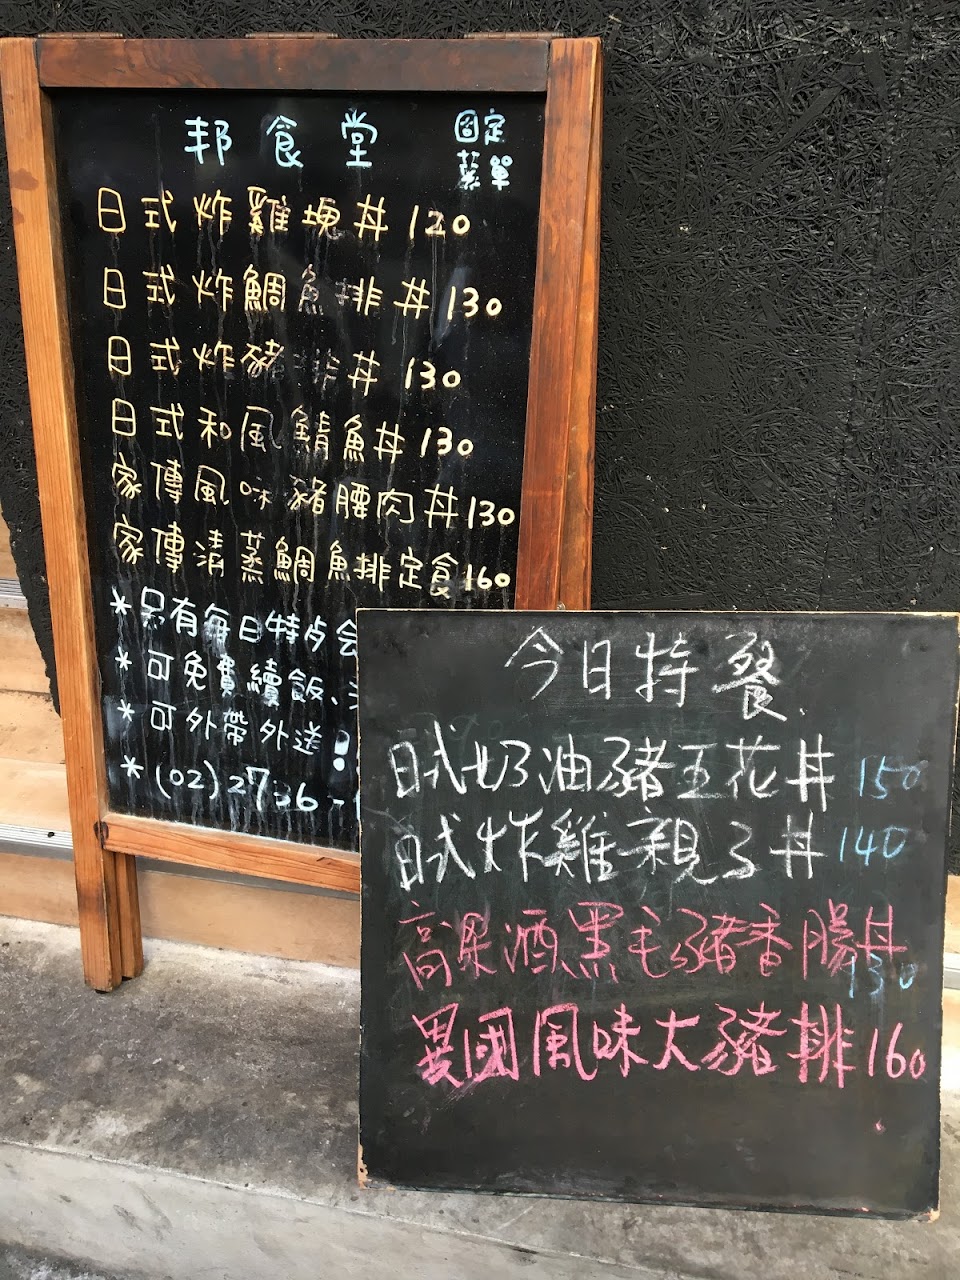 邦食堂
固定
菜單
日式炸雞塊丼120
日式炸鯛魚排丼130
日式炸豬排丼130
日式和風鯖魚丼130
家傳風味豬腰肉丼130
家傳清蒸鯛魚排定食160
*另有每日特歺
*可免費續飯、
*可外帶外送!
*(02)2736-
今日特餐
日式奶油豬五花丼150
日式炸雞親子丼140
高粱酒黑毛豬香腸丼
130
異國風味大豬排160